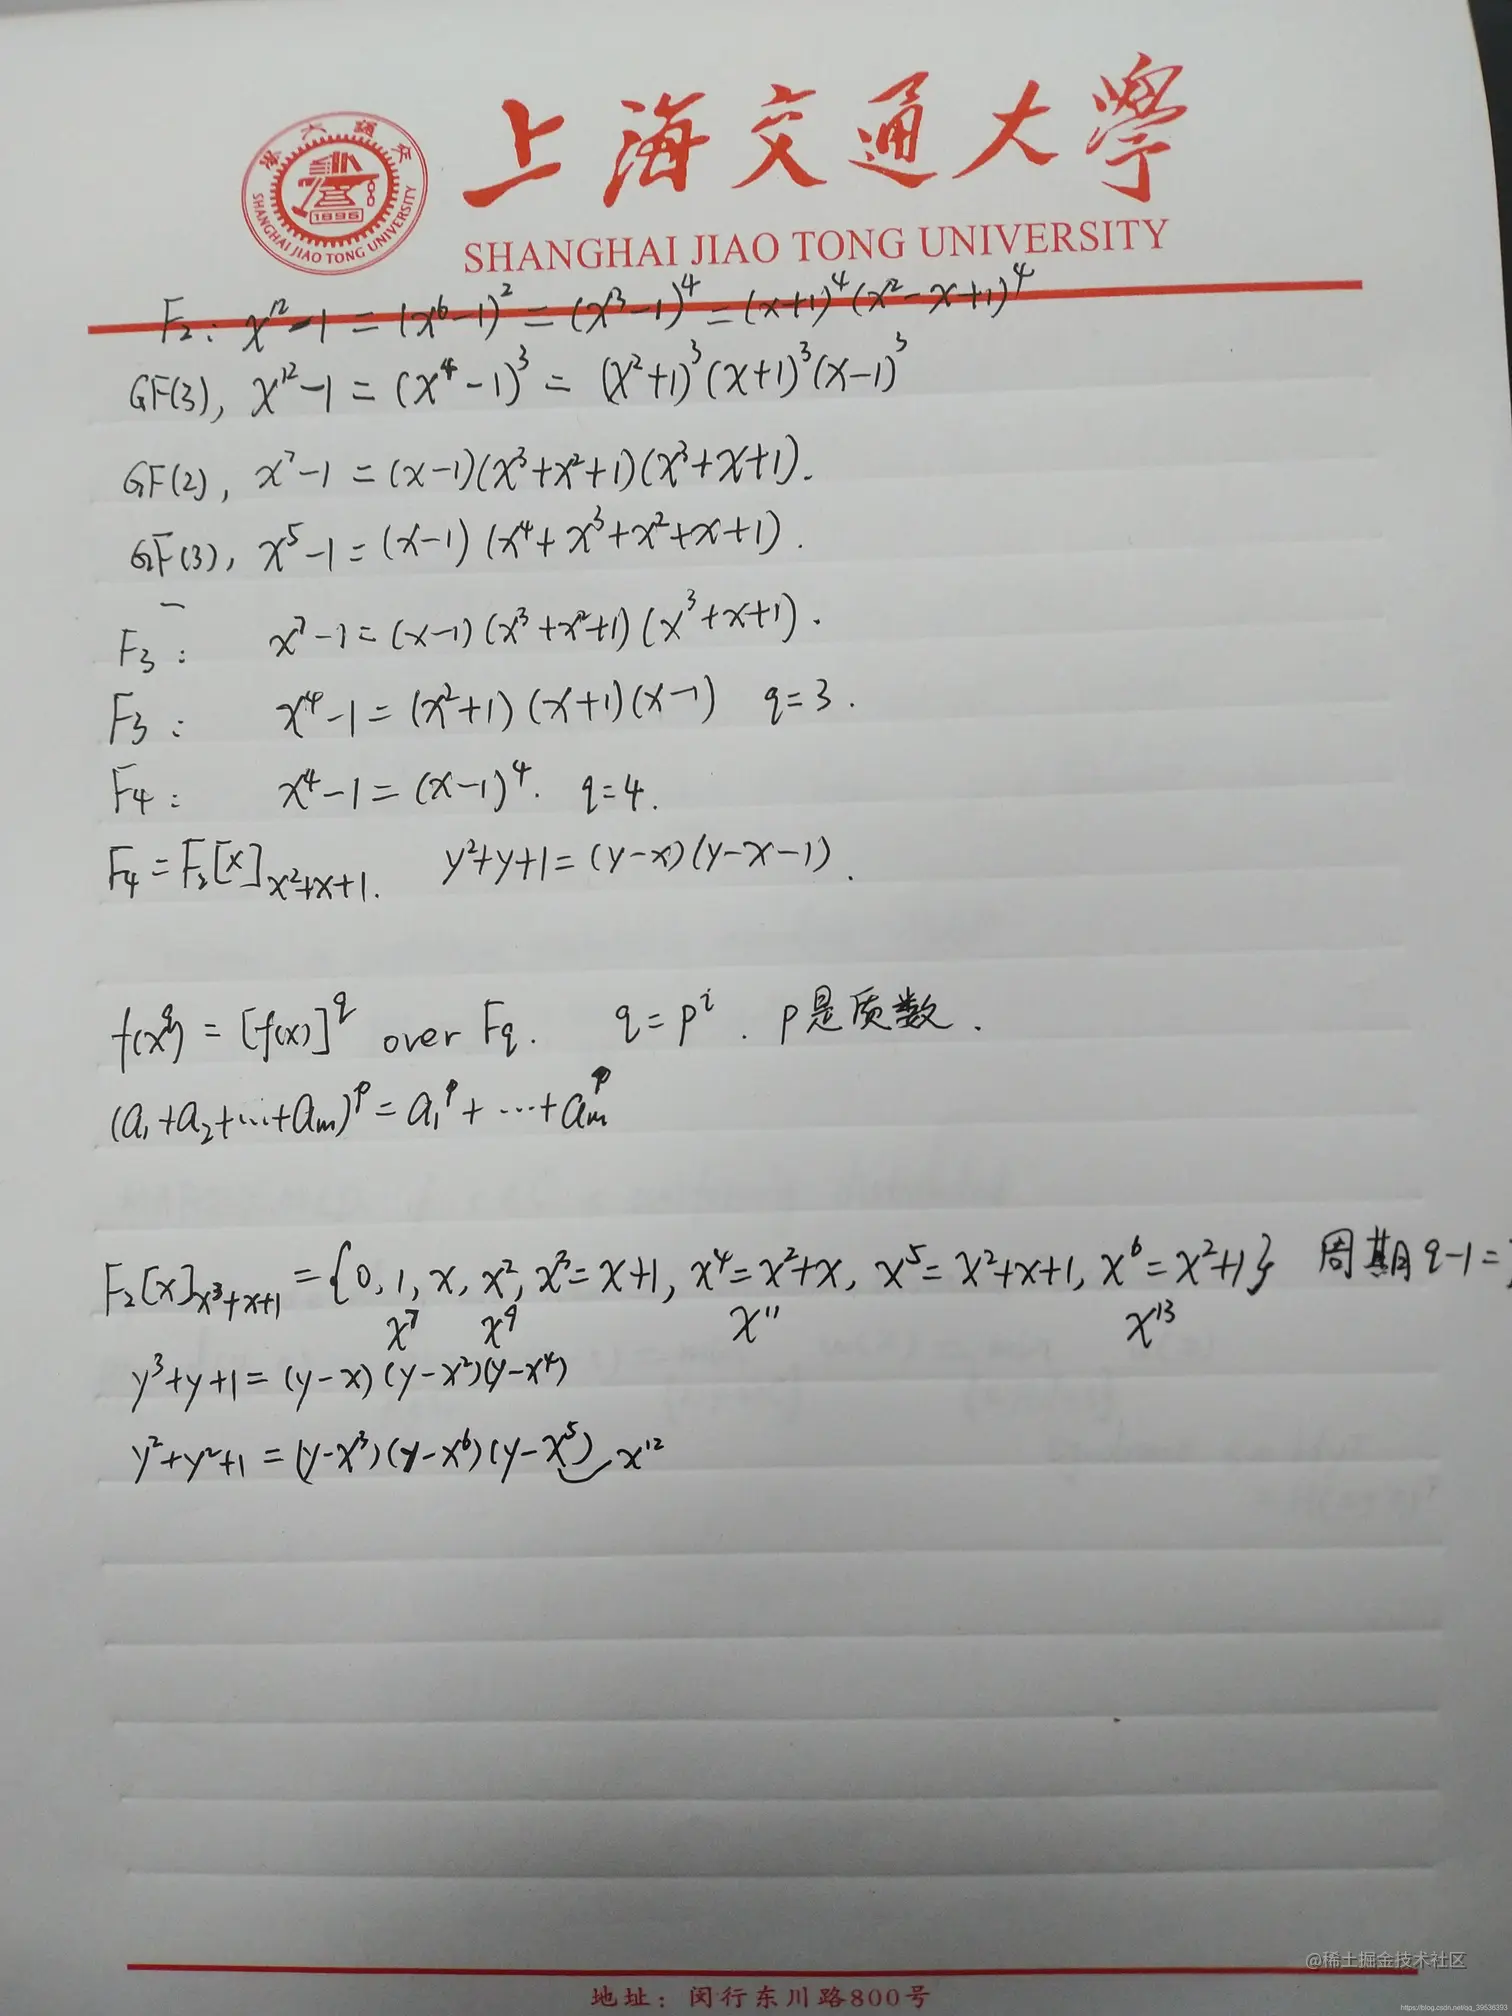 上海交通大學
SHANGHAI JIAO TONG UNIVERSITY
SHANGHAI JIAO TONG UNIVERSITY
1896
F₂: x¹²-1 = (x⁶-1)² = (x³-1)⁴ = (x+1)⁴(x²-x+1)⁴
GF(3), x¹²-1 = (x⁴-1)³ = (x²+1)³(x+1)³(x-1)³
GF(2), x⁷-1 = (x-1)(x³+x²+1)(x³+x+1).
GF(3), x⁵-1 = (x-1)(x⁴+x³+x²+x+1).
F₃: x⁷-1 = (x-1)(x³+x²+1)(x³+x+1).
F₃: x⁴-1 = (x²+1)(x+1)(x-1) q=3.
F₄: x⁴-1 = (x-1)⁴. q=4.
F₄ = F₂[x]_{x²+x+1}. y²+y+1 = (y-x)(y-x-1).
f(x^q) = [f(x)]^q over F_q. q = p^i. p是质数.
(a₁+a₂+…+a_m)^p = a₁^p+…+a_m^p
F₂[x]_{x³+x+1} = {0, 1, x, x², x³=x+1, x⁴=x²+x, x⁵=x²+x+1, x⁶=x²+1} 周期q-1=
x⁷ x⁹ x¹¹ x¹³
y³+y+1 = (y-x)(y-x²)(y-x⁴)
y²+y²+1 = (y-x³)(y-x⁶)(y-x⁵) x¹²
@稀土掘金技术社区
地址：闵行东川路800号